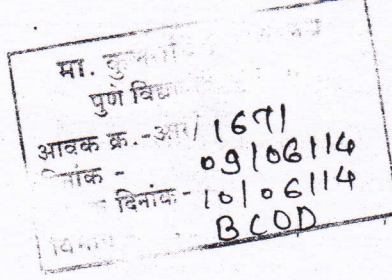 मा. कुल
पुणे विद्या
आवक क्र.-आर/ 1671
दिनांक - 09/06/14
दिनांक- 10/06/14
विभाग BCOD